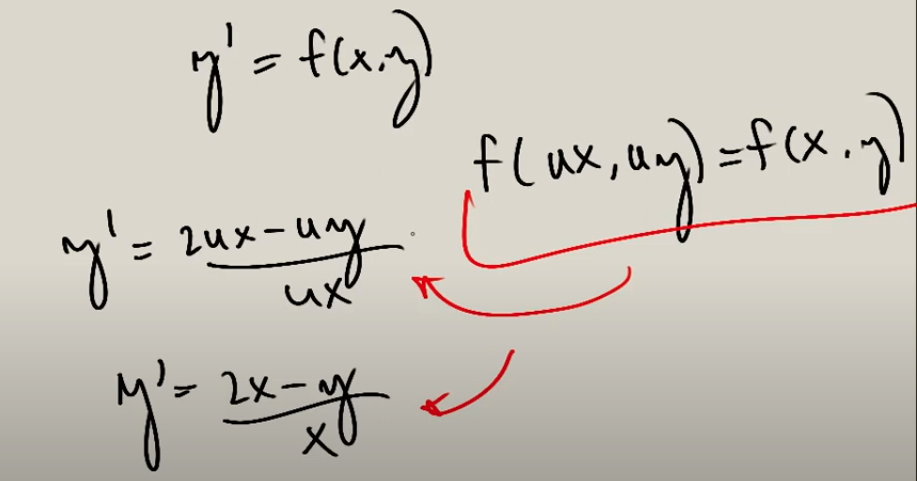 y' = f(x,y)
f(ux,uy)=f(x,y)
y' = 2ux-uy / ux
y' = 2x-y / x